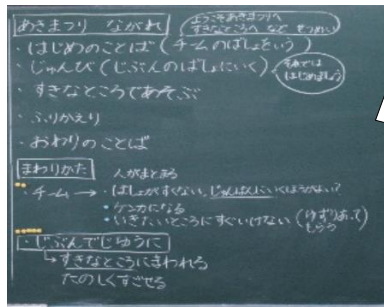 あきまつり ながれ
ようこそあきまつりへ
すきなところへ など せつめい
・はじめのことば(チームのばしょをいう)
・じゅんび(じぶんのばしょにいく)
それでは
はじめましょう
・すきなところであそぶ
・ふりかえり
・おわりのことば
まわりかた
人がまとまる
・チーム→・ばしょがすくない、じゅんばんにいくほうがいい?
・ケンカになる
・いきたいところにすぐいけない(ゆずりあって
もらう
・じぶんでじゆうに
↳すきなところにまわれる
たのしくすごせる